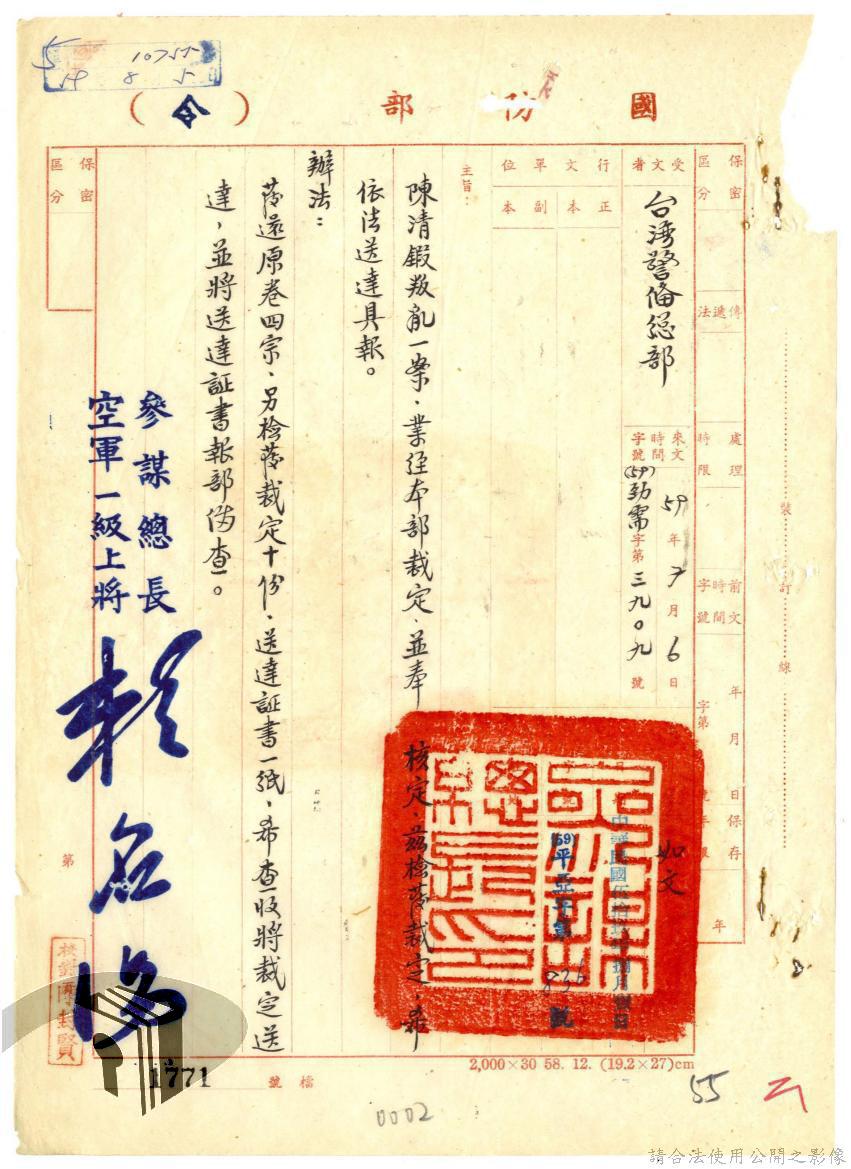 5
10755
59 8 5
國防部（令）
保密區分
傳遞法
處理時限
前文時間字號
年 月 日
字第 號
保存年限
年
受文者
台灣警備總部
來文時間字號
59年7月6日
(59)勁需字第三九○九號
行文單位
正本
副本
如文
中華民國伍拾玖年捌月 日
(59)平亞字第836號
主旨：
陳清鍜叛亂一案、業經本部裁定、並奉 核定、茲檢發裁定，希
依法送達具報。
辦法：
發還原卷四宗、另檢發裁定十份、送達証書一紙、希查收將裁定送
達，並將送達証書報部備查。
參謀總長
空軍一級上將
賴名湯
保密區分
第
檔號
1771
2,000×30 58. 12. (19.2×27)cm
裝 訂 線
55
0002
請合法使用公開之影像